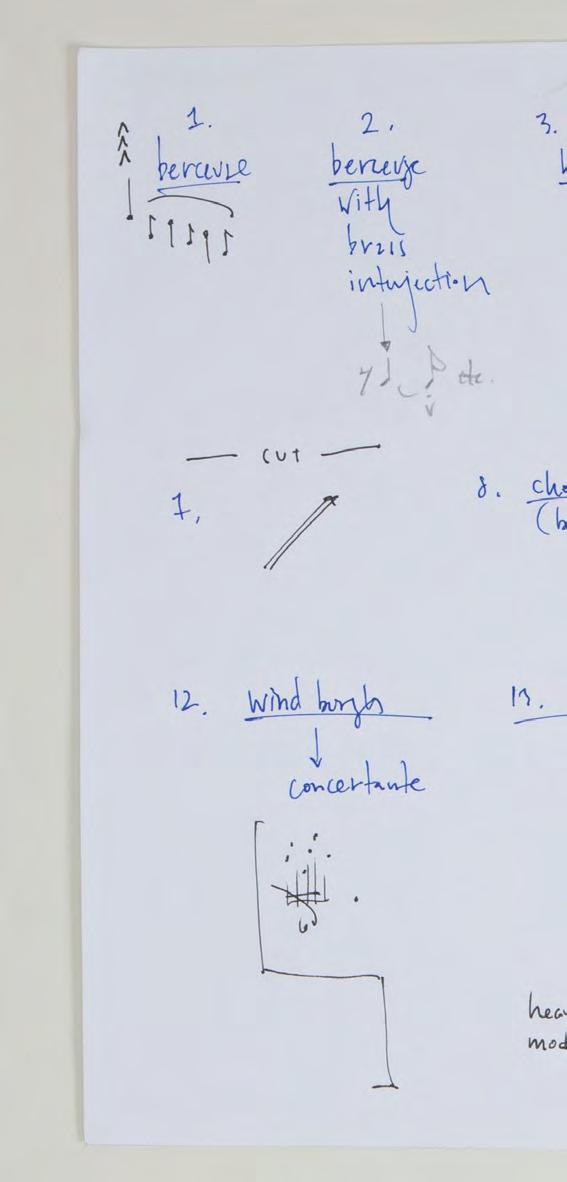 1.
berceuse
2.
berceuse
with
brass
interjection
etc.
3.
CUT
7.
8. cho
(b
12. wind
concertante
13.
heav
mod